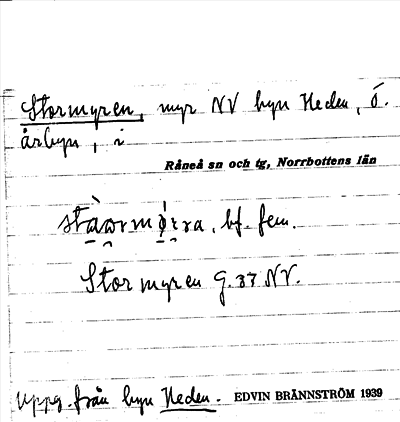 Stormyren, myr NV byn Heden, ö.
årbyn, i
Råneå sn och tg, Norrbottens län
bf. fem.
Stormyren G. 37 NV.
Uppg. från byn Heden. EDVIN BRÄNNSTRÖM 1939